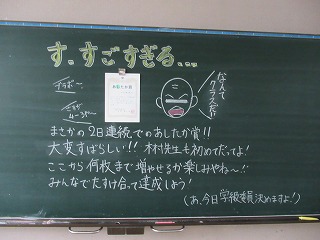 す、すごすぎる...
ナラボ〜
あしたか賞
なんてクラスだ!!
まさかの2日連続でのあしたか賞!!
大変すばらしい!! 木村先生も初めてだってよ!
ここから何枚まで増やせるか楽しみやね〜!!
みんなでたすけ合って達成しよう!
(あ、今日学級委員決めますよ!)